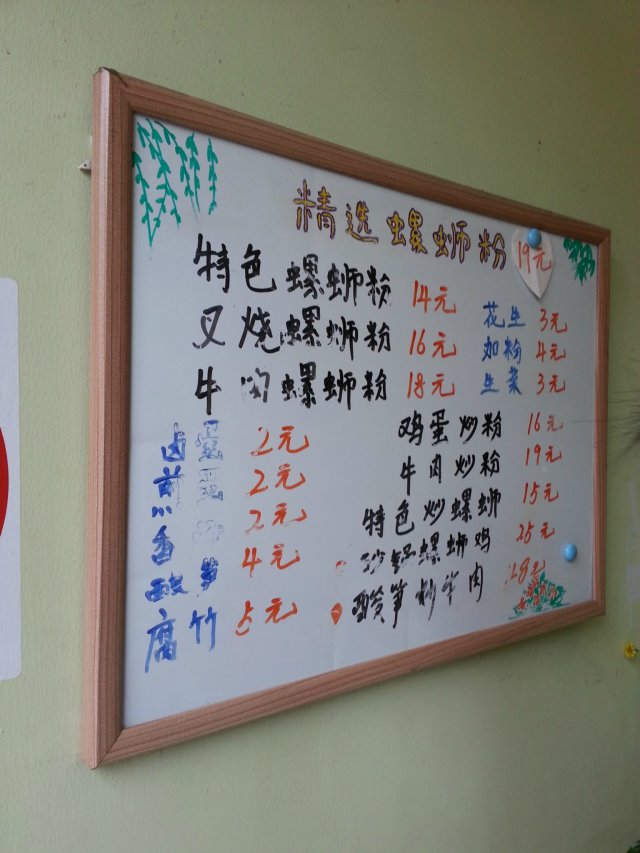 精选螺蛳粉 19元
特色螺蛳粉 14元
叉烧螺蛳粉 16元
牛肉螺蛳粉 18元
花生 3元
加粉 4元
生菜 3元
卤蛋 2元
煎蛋 2元
香 2元
酸笋 4元
腐竹 5元
鸡蛋炒粉 16元
牛肉炒粉 19元
特色炒螺蛳 15元
砂锅螺蛳鸡 25元
酸笋炒牛肉 28元